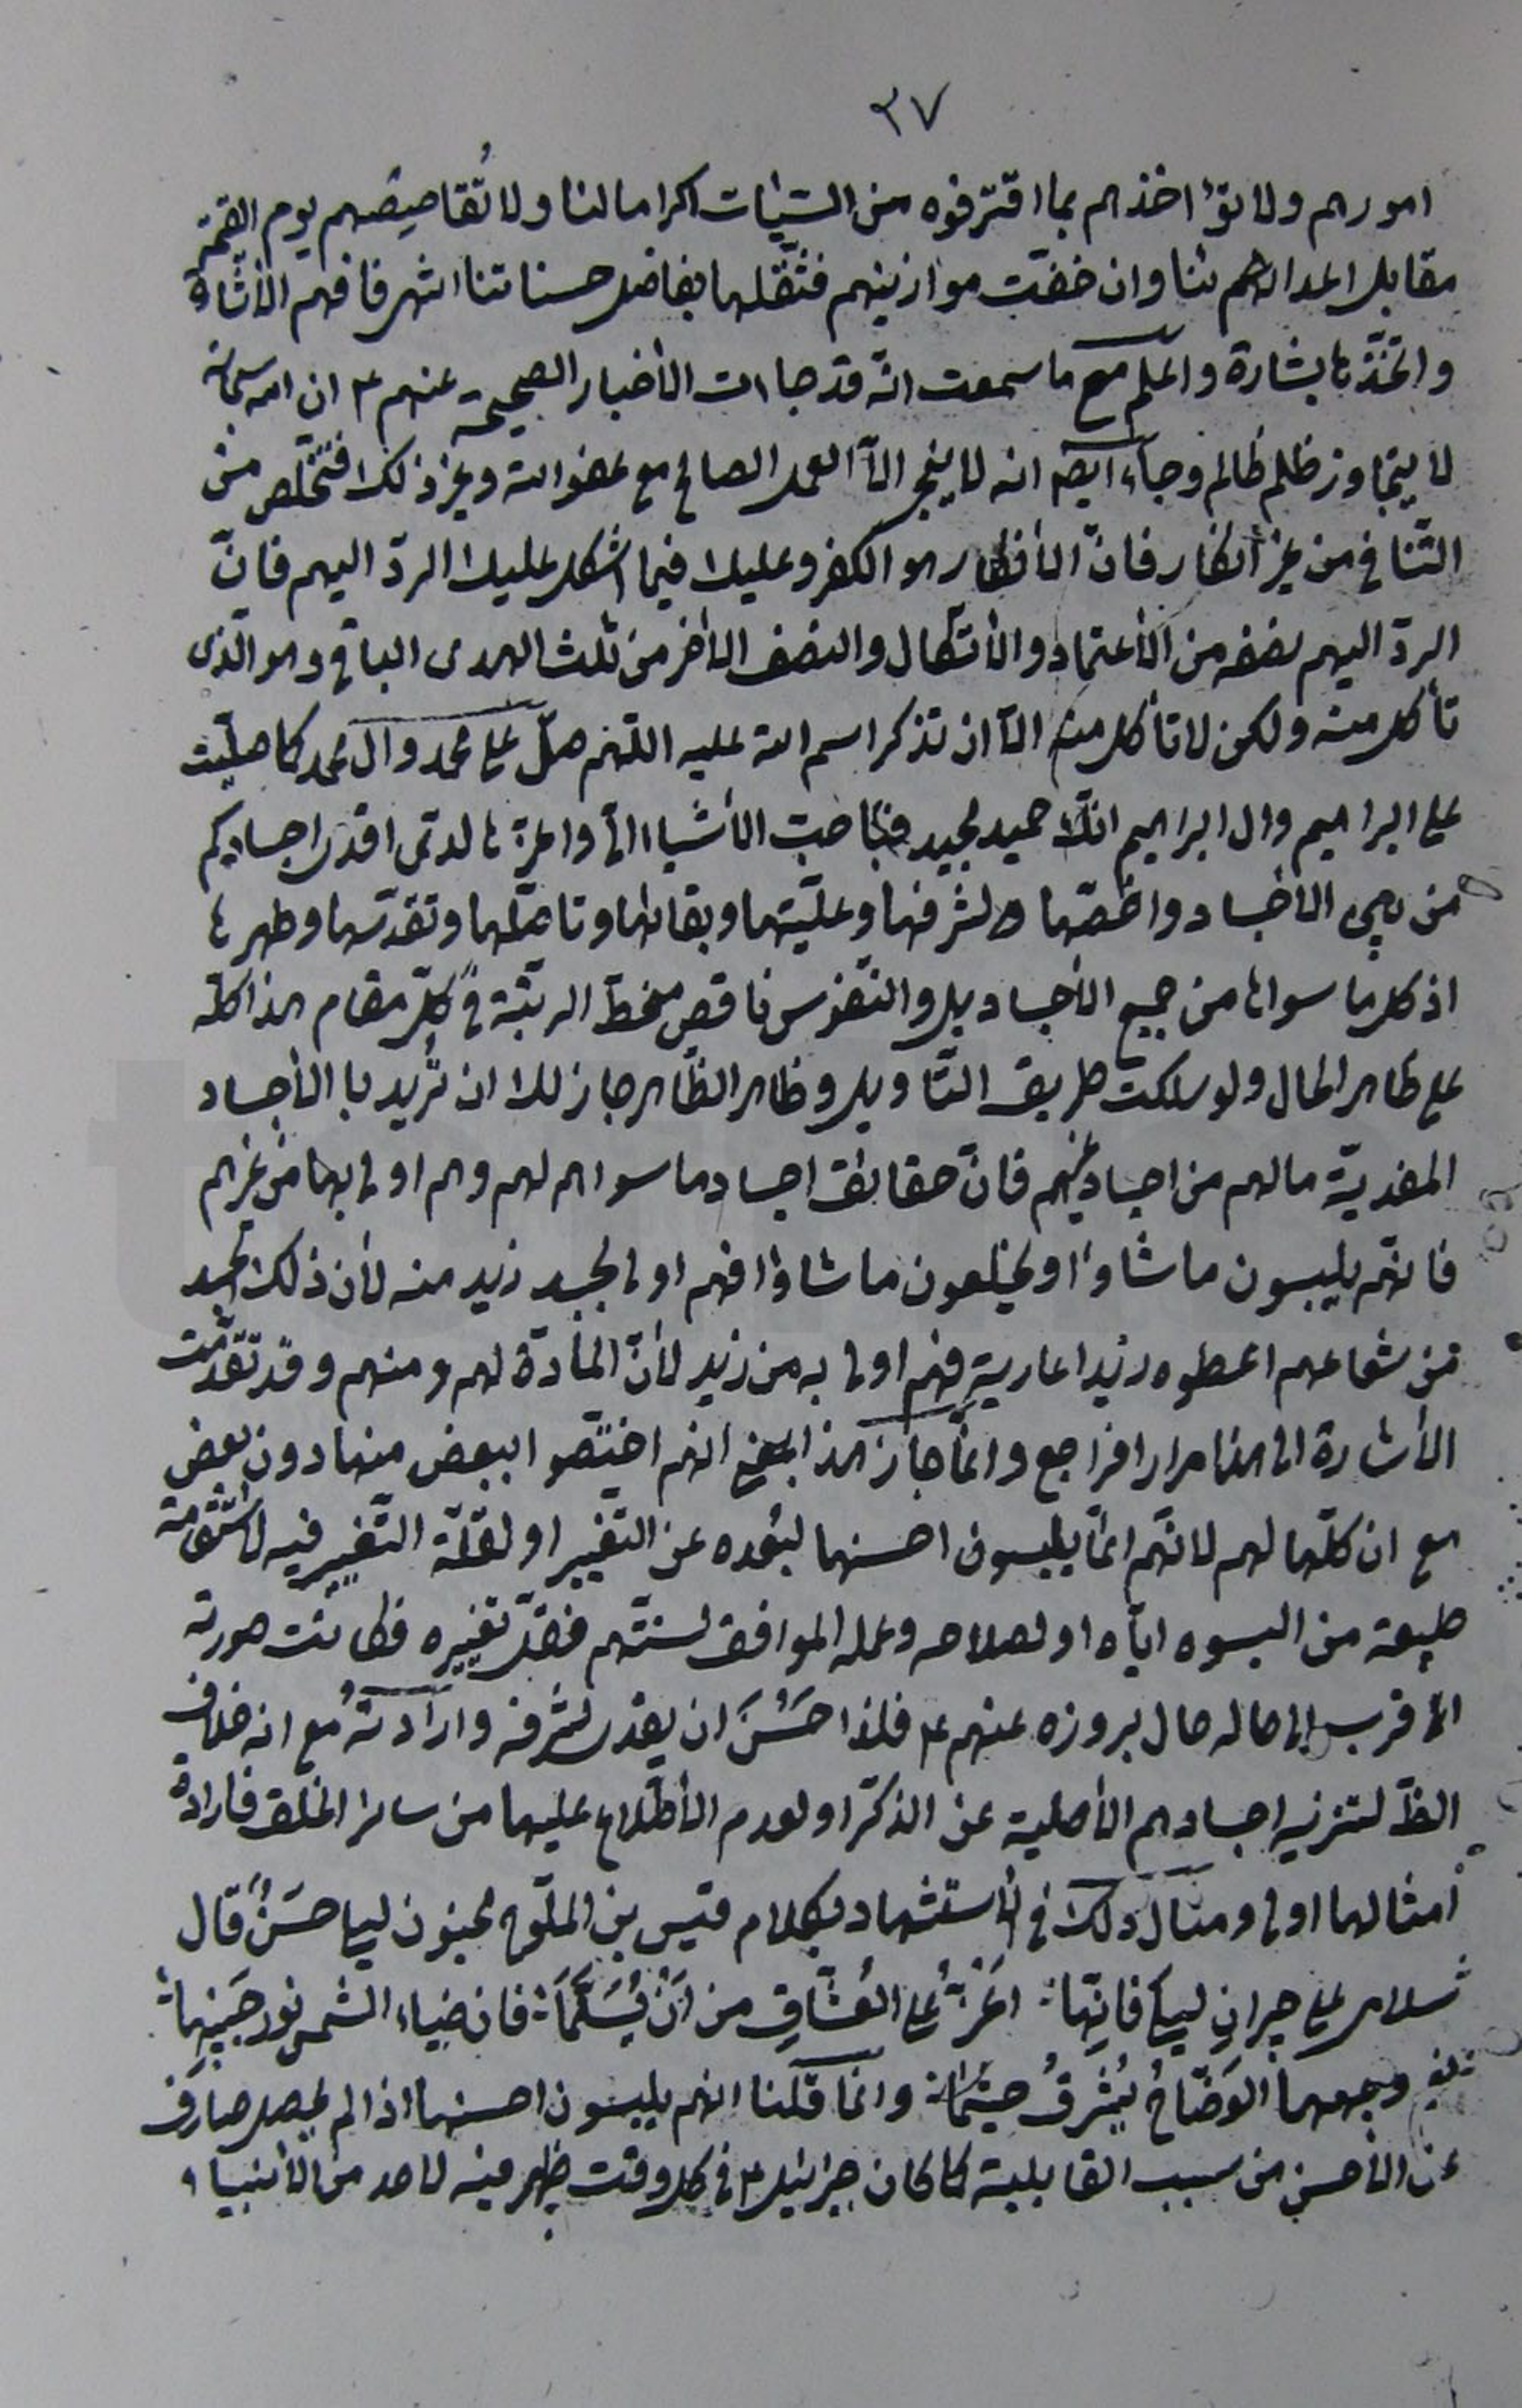 ٣٧
امورهم ولا تؤاخذهم بما اقترفوه من السّيئات اكراما لنا ولا تُقاصِصهم يوم القيمة
مقابل اعدائهم لنا وان خفّت موازينهم فثقّلها بفاضل حسناتنا انتهى فافهم الأشارة
واتخذها بشارة واعلم مع ما سمعت انّه قد جاءت الأخبار الصحيحة عنهم ع ان الله سبحانه
لا يتجاوز ظلم ظالم وجاء ايضم انه لا ينجى الّا العمل الصالح مع عفو الله وغير ذلك فتخلّص من
التّنافى من غير انكار فانّ الأنكار هو الكفر وعليك فيما اشكل عليك الردّ اليهم فانّ
الردّ اليهم نصفه من الأعتماد والأتكال والنصف الأخر من ثلث الهدى الباقى وهو الّذى
تأكل منه ولكن لا تأكل منه الّا ان تذكر اسم الله عليه اللّهم صلّ على محمد وآل محمد كما صلّيت
على ابراهيم وال ابراهيم انّك حميد مجيد فبما حبّ الأشياء الىّ واعزّها لدىّ افدى اجسادكم
من بين الأجساد واخصّها لشرفها وعلّيّتها وبقائها وتاصّلها وتقدّسها وطهرها
اذ كل ما سواها من جميع الأجساد بل والنّفوس ناقص منحطّ الرتبة فى كلّ مقام هذا كلّه
على ظاهر الحال ولو سلكت طريق التّاويل وظاهر الظّاهر جاز لك ان تُريد با الأجساد
المفديّة ما لهم من اجساد غيرهم فانّ حقائق اجساد ما سواهم لهم وهم اولى بها من غيرهم
فانّهم يلبسون ما شاؤا ويخلعون ما شاؤا فهم اولى بجسد زيد منه لأن ذلك الجسد
من شعاعهم اعطوه زيدا عارية فهم اولى به من زيد لأنّ المادّة لهم ومنهم وقد تقدّمت
الأشارة الى هذا مرارا فراجع وانّما جاز هذا المعنى انهم اختصّوا ببعض منها دون بعض
مع ان كلّها لهم لانّهم انّما يلبسون احسنها لبُعده عن التّغيير او لقلّة التّغيير فيه لاستقامة
طبيعة من البسوه ايّاه او لصلاحه وعمله الموافق لسنّتهم فقلّ تغييره فكانت صورته
اقرب الى حاله حال بروزه عنهم ع فلذا حَسُنَ ان يفدى لشرفه وارادتُه مع انه خلاف
الظّ لتنزيه اجسادهم الأصلية عن الذكر او لعدم الأطّلاع عليها من سائر الخلق فارادة
امثالها اولى ومثال ذلك فى الأستشهاد بكلام قيس بن الملّوح مجنون ليلى حَسَنٌ قال
سلام على جيرانِ ليلى فانِّها ؛ اعزّ على العُشّاقِ من اَنْ يُسَلَّمَا ؛ فان ضياء الشمس نور جبينها ؛
وجهها الوَضّاحُ يُشرِقُ حيثُما ؛ وانما قلنا انهم يلبسون احسنها اذا لم يحصل صارف
عن الأحسن من سبب القابلية كما كان جبرئيل ع فى كل وقت يظهر فيه لاحد من الأنبياء